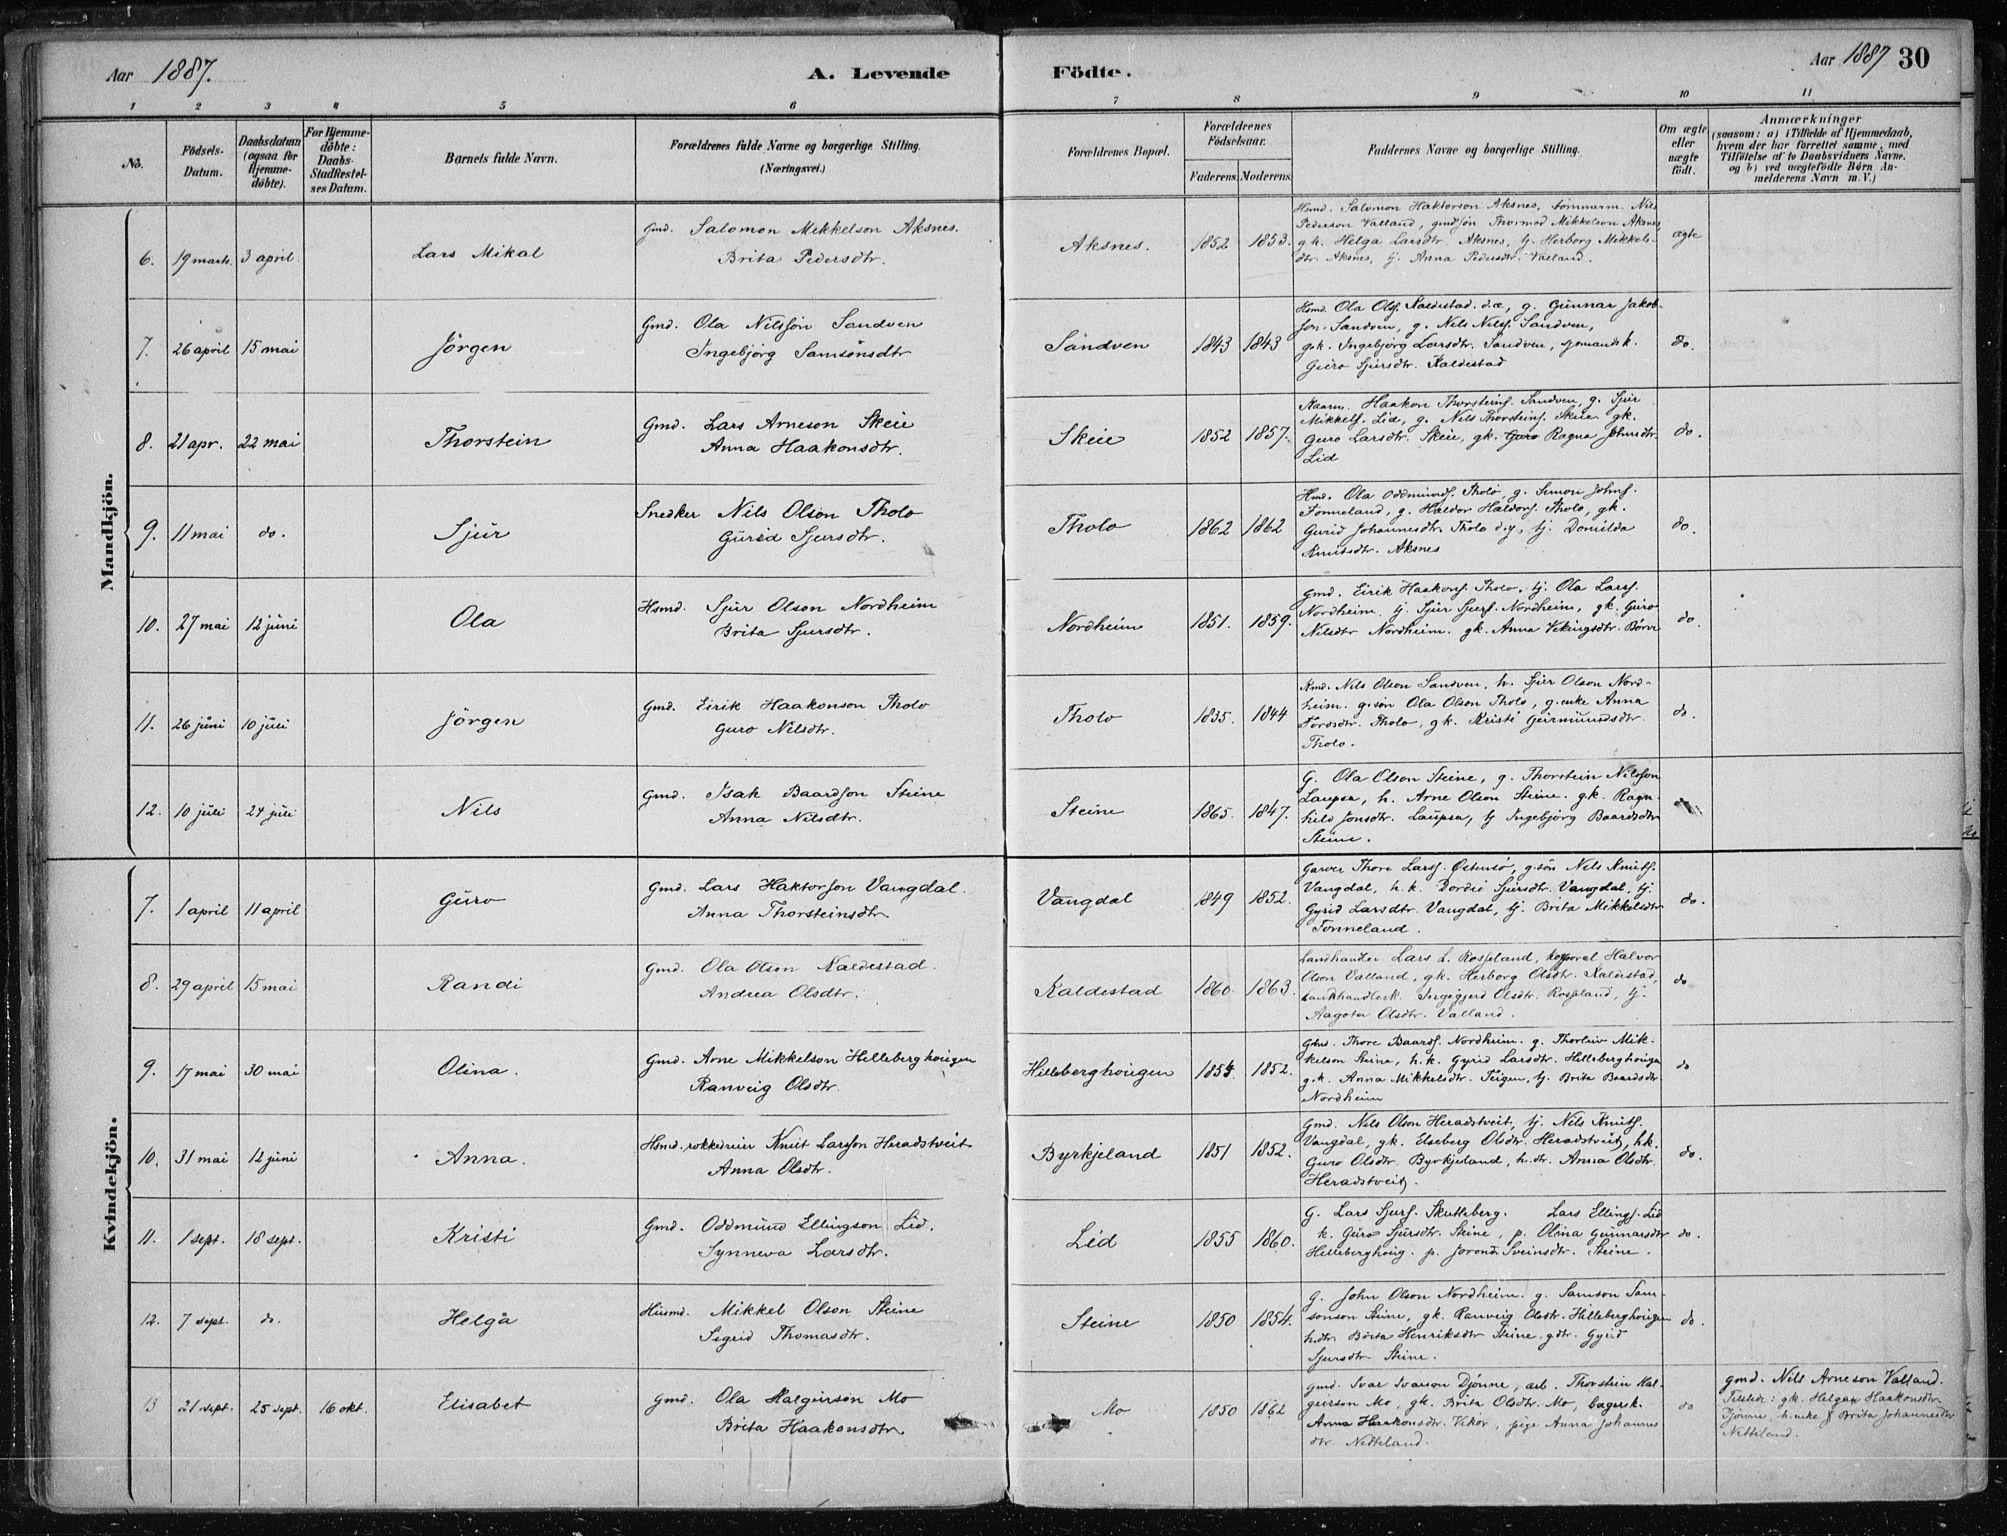 Aar 1887.
A. Levende
Födte.
Aar 1887
30
1 2 3 4 5 6 7 8 9 10 11
No.
Födsels-
Datum.
Daabsdatum
(ogsaa for
Hjemme-
döbte).
For Hjemme-
döbte:
Daabs-
Stadfæstel-
ses Datum.
Barnets fulde Navn.
Forældrenes fulde Navne og borgerlige Stilling.
(Næringsvei.)
Forældrenes Bopæl.
Forældrenes
Födselsaar.
Faderens. Moderens.
Faddernes Navne og borgerlige Stilling.
Om ægte
eller
uægte
födt.
Anmærkninger
(saasom: a) i Tilfælde af Hjemmedaab,
hvem der har forrettet samme, med
Tilföielse af to Daabsvidners Navne.
og b) ved uægtefödte Börn An-
melderens Navn m. V.)
Mandkjön.
6. 19 marts. 3 april.
Lars Mikal
Gmd. Salomon Mikkelson Aksnes.
Brita Pedersdtr.
Aksnes. 1852 1853.
Hsmd. Salomon Haktorson Aksnes, tömmerm. Nils
Pederson Valland, gmdsön Thormod Mikkelson Aksnes,
g.k. Helga Larsdtr. Aksnes, tj. Herborg Mikkels-
dtr. Aksnes, tj. Anna Pedersdtr. Valland.
ægte
7. 26 april 15 mai
Jörgen
Gmd. Ola Nilsson Sandven
Ingebjörg Samsonsdtr
Sandven 1843 1843
Hsmd. Ola Olss. Kaldestad. d.æ, g. Gunnar Jakob-
son. Sandven, g. Nils Nilss. Sandven,
g.k. Ingebjörg Larsdtr. Sandven, sjömandsk.
Guro Sjursdtr. Kaldestad
do.
8. 21 apr. 22 mai
Thorstein
Gmd. Lars Arneson Skeie
Anna Haakonsdtr.
Skeie 1852 1857.
Kaarm. Haakon Thorsteins. Sandven, g. Sjur
Mikkels. Lid, g. Nils Thorsteins. Skeie. gk.
Guro Larsdtr. Skeie, gk. Guro Ragna Johnsdtr.
Lid
do.
9. 11 mai do.
Sjur
Snedker Nils Olson Tholo
Gurid Sjursdtr.
Tholo 1862 1862
Hmd. Ola Oddmunds. Tholo, g. Simon Johns.
Fonneland, g. Haldor Haldors. Tholo, gk.
Gurid Johannesdtr. Tholo d.y, tj. Domilda
Knutsdtr. Aksnes
do.
10. 27 mai 12 juni
Ola
Hsmd. Sjur Olson Nordheim
Brita Sjursdtr.
Nordheim 1851. 1859.
Gmd. Eirik Haakons. Tholo. tj. Ola Larss.
Nordheim, tj. Sjur Sjurs. Nordheim, gk. Guro
Nilsdtr Nordheim. gk. Anna Vikingsdtr. Börve
do.
11. 26 juni 10 juli
Jörgen
Gmd. Eirik Haakonson Tholo
Guro Nilsdtr.
Tholo 1835. 1844
Kmd. Nils Olson Sandven, h. Sjur Olson Nord-
heim. g.sön Ola Olson Tholo, g.enke Anna
Tordsdtr. Tholo, gk. Kristi Geirmundsdtr
Tholo.
do.
12. 10 juli 24 juli
Nils
Gmd. Isak Baardson Steine
Anna Nilsdtr.
Steine 1865. 1847.
G. Ola Olson Steine, g. Thorstein Nilsson
Laupsa, h. Arne Olson Steine. gk. Ragn-
hild Jonsdtr. Laupsa, tj Ingebjörg Baardsdtr
Steine.
Kvindekjön.
7. 1 april 11 april
Guro
Gmd. Lars Haktorson Vangdal.
Anna Thorsteinsdtr
Vangdal 1849 1852.
Garver Thore Larss. Östensö, g.sön Nils Knuts.
Vangdal, h.k. Dordei Sjursdtr. Vangdal, tj.
Gyrid Larsdtr. Vangdal, tj. Brita Mikkelsdtr
Fonneland.
do.
8. 29 april 15 mai
Randi
Gmd. Ola Olson Kaldestad.
Andrea Olsdtr.
Kaldestad 1860 1863.
Landhandler Lars L. Rosseland, korporal Halvor
Olson Valland, gk. Herborg Olsdtr. Kaldestad,
Landhandlerk. Ingegjerd Olsdtr. Rosseland, tj.
Aagota Olsdtr. Valland.
do
9. 17 mai 30 mai
Olina.
Gmd. Arne Mikkelson Helleberghougen
Ranveig Olsdtr.
Helleberghougen 1854. 1852.
Gmd. Thore Baards. Nordheim. g. Thorleiv Mik-
kelson Steine, h.k. Gyrid Larsdtr. Helleberghougen
g.k. Anna Mikkelsdtr. Teigen, tj. Brita Baardsdtr
Nordheim
do
10. 31 mai 12 juni
Anna.
Hsmd. rokkedreier Knut Larsson Heradstveit
Anna Olsdtr.
Byrkjeland 1851 1852.
Gmd. Nils Olson Heradstveit, tj. Nils Knuts.
Vangdal, gk. Elseberg Olsdtr. Heradstveit, h.k.
Guro Olsdtr. Byrkjeland, h.dtr. Anna Olsdtr.
Heradstveit.
do.
11. 1 sept. 18 sept.
Kristi
Gmd. Oddmund Ellingson Lid.
Synneva Larsdtr.
Lid 1855 1860.
G. Lars Sjurs. Skutleberg. Lars Ellings. Lid
k. Guro Sjursdtr. Steine, p. Olina Gunnarsdtr
Helleberghoug. p. Jorond Sveinsdtr. Steine.
do.
12. 7 sept. do.
Helga
Husmd. Mikkel Olson Steine
Sigrid Thomasdtr.
Steine 1850 1854.
G. John Olson Nordheim. g. Samson Sam-
sonson Steine, gk. Ranveig Olsdtr. Helleberghougen
h.dtr. Brita Henriksdtr Steine. gdtr. Gyrid
Sjursdtr Steine.
do.
13 21 sept. 25 sept. 16 okt.
Elisabet
Gmd. Ola Halgeirson Mo
Brita Haakonsdtr
Mo 1850 1862
Gmd. Ivar Ivarson Djönne, arb. Thorstein Hal-
geirson Mo, gk. Brita Olsdtr. Mo, bagersk.
Anna Haakonsdtr. Vikör, pige Anna Johannes
dtr. Netteland.
do
gmd. Nils Arneson Valland.
Tilstede: gk. Helga Haakonsdtr
Djönne, h.enke Brita Johannesdtr
Netteland.